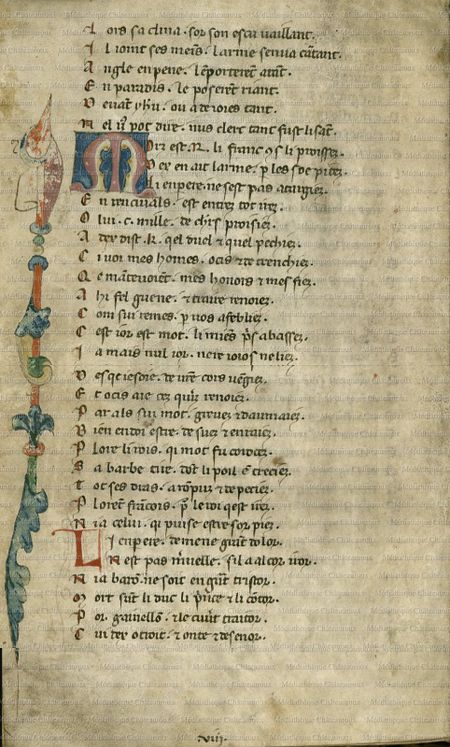 Lors sa clina · sor son escu vaillant ·
Il ioint ses meins · larme senva cātant ·
Angle enpene · lēporterent atāt ·
En paradis · le poserēt riant ·
Deuāt yhu · ou a de ioies tant ·
Nel uꝰ poc dire · nus clers tant fust lisāt ·
Morz est .R. li franc 9s li proissez ·
Dex en ait larme · p les soe pitez ·
Li enpere · nesest pas atargiez ·
En renciuals · est entrez tot irez ·
O lui · c · mille · de chrs proisiez ·
A dex dist · k · qel duel & quel pechiez ·
Ci uoi mes homes · ocis & detrenchiez ·
Qe māteuoiēt · mes honors & mes fiez ·
Ahi fel guene · & traite renoiez ·
Com sui remes · p uos afebliez ·
Cest ior est mot · li miens pris abassez ·
Ia mais nul ior · neire ioios ne liez ·
Des qe iesoie · de uꝰre cors uēgiez ·
Et ocis aie cez qui renoiez ·
Par als sui mot · greuez & damaiez ·
Bien en doi estre · desuez & enraiez ·
Plore li rois · qi mot fu coreciez ·
Sa barbe tire · dōt li poil ē crēciez ·
Tot ses dras · a rōpuz & depeciez ·
Plorēt francois · p le roi qest irez ·
Nia celui · qi puise estre sor piez ·
Li enpere · demene grāt dolor ·
Nest pas mꝰuelle · sil a al cor iror ·
Nia barō · ne soit en grāt tristor ·
Mort sunt li duc li prīce & li cōtor ·
Por gainellō · & le cuūt traitor ·
Cui dex otroit · & onte & desenor ·
viii
Médiathèque Châteauroux